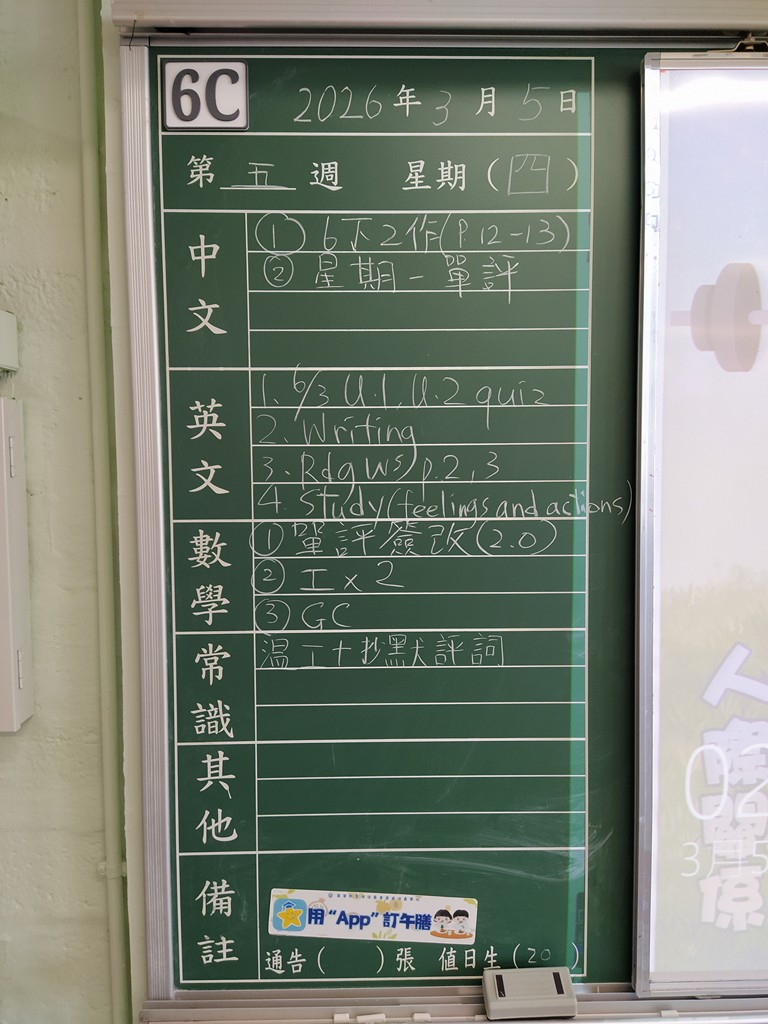 6C 2026年3月5日
第五週 星期(四)
中文
① 6下2作(P.12-13)
② 星期一單評
英文
1. 6/3 U.1, U.2 quiz
2. Writing
3. Rdg WS p.2,3
4. Study (feelings and actions)
數學
① 單評簽改(2.0)
② 工x2
③ GC
常識
溫工+抄默評詞
其他
備註
用“App”訂午膳
通告( )張 值日生(20)
人際關係
02
3月5